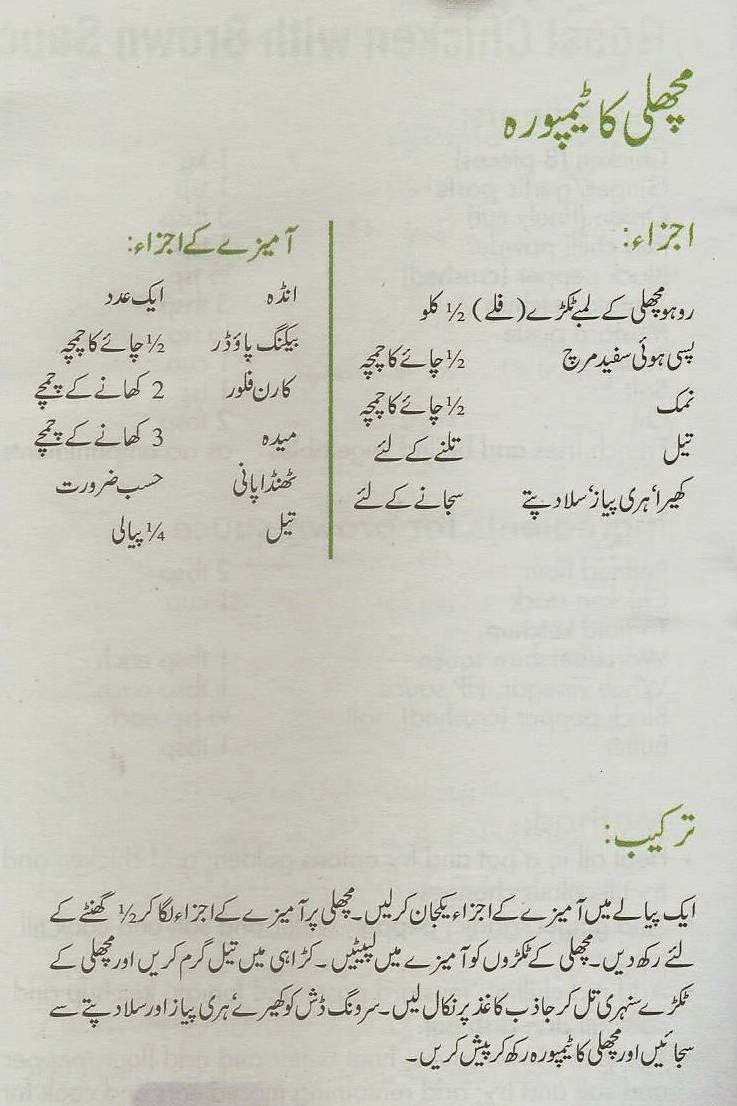 مچھلی کا ٹیمپورہ
اجزاء:
روہو مچھلی کے لمبے ٹکڑے (فلے) ½ کلو
پسی ہوئی سفید مرچ ½ چائے کا چمچہ
نمک ½ چائے کا چمچہ
تیل تلنے کے لئے
کھیرا، ہری پیاز، سلاد پتے سجانے کے لئے
آمیزے کے اجزاء:
انڈہ ایک عدد
بیکنگ پاؤڈر ½ چائے کا چمچہ
کارن فلور 2 کھانے کے چمچے
میدہ 3 کھانے کے چمچے
ٹھنڈا پانی حسب ضرورت
تیل ¼ پیالی
ترکیب:
ایک پیالے میں آمیزے کے اجزاء یکجان کر لیں۔ مچھلی پر آمیزے کے اجزاء لگا کر ½ گھنٹے کے
لئے رکھ دیں۔ مچھلی کے ٹکڑوں کو آمیزے میں لپیٹیں۔ کڑاہی میں تیل گرم کریں اور مچھلی کے
ٹکڑے سنہری تل کر جاذب کاغذ پر نکال لیں۔ سرونگ ڈش کو کھیرے، ہری پیاز اور سلاد پتے سے
سجائیں اور مچھلی کا ٹیمپورہ رکھ کر پیش کریں۔